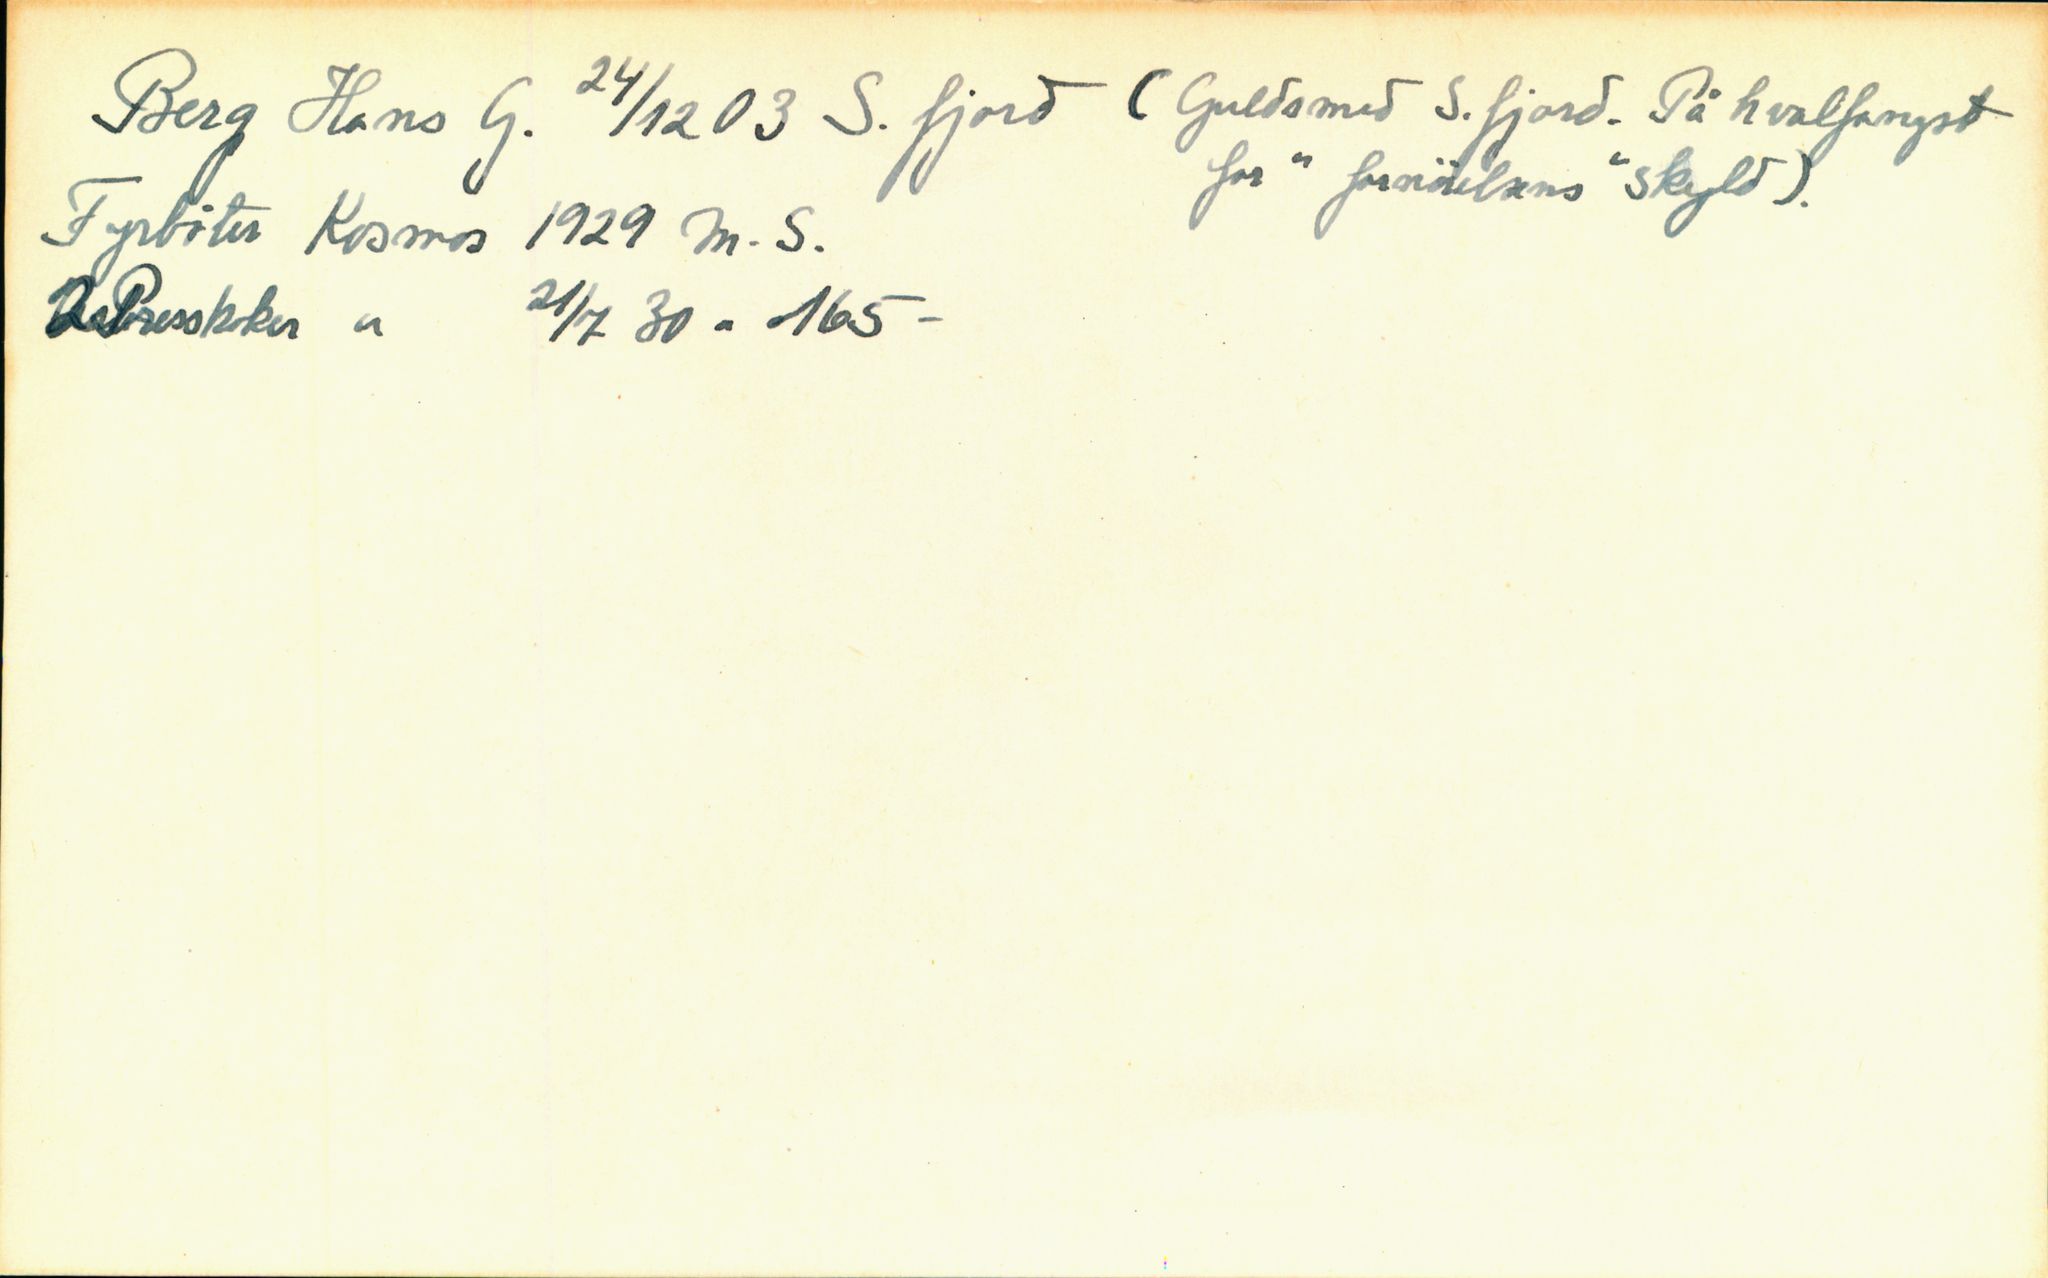 Berg Hans G. 24/12 03 S. fjord (Guldsmed S. fjord. På hvalfangst
for "fornöielsens" skyld).
Fyrböter Kosmos 1929 M. S.
Presskoker " 21/7 30 - 165 -